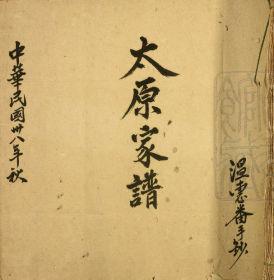 温惠番手鈔
太原家譜
中華民國卅八年秋